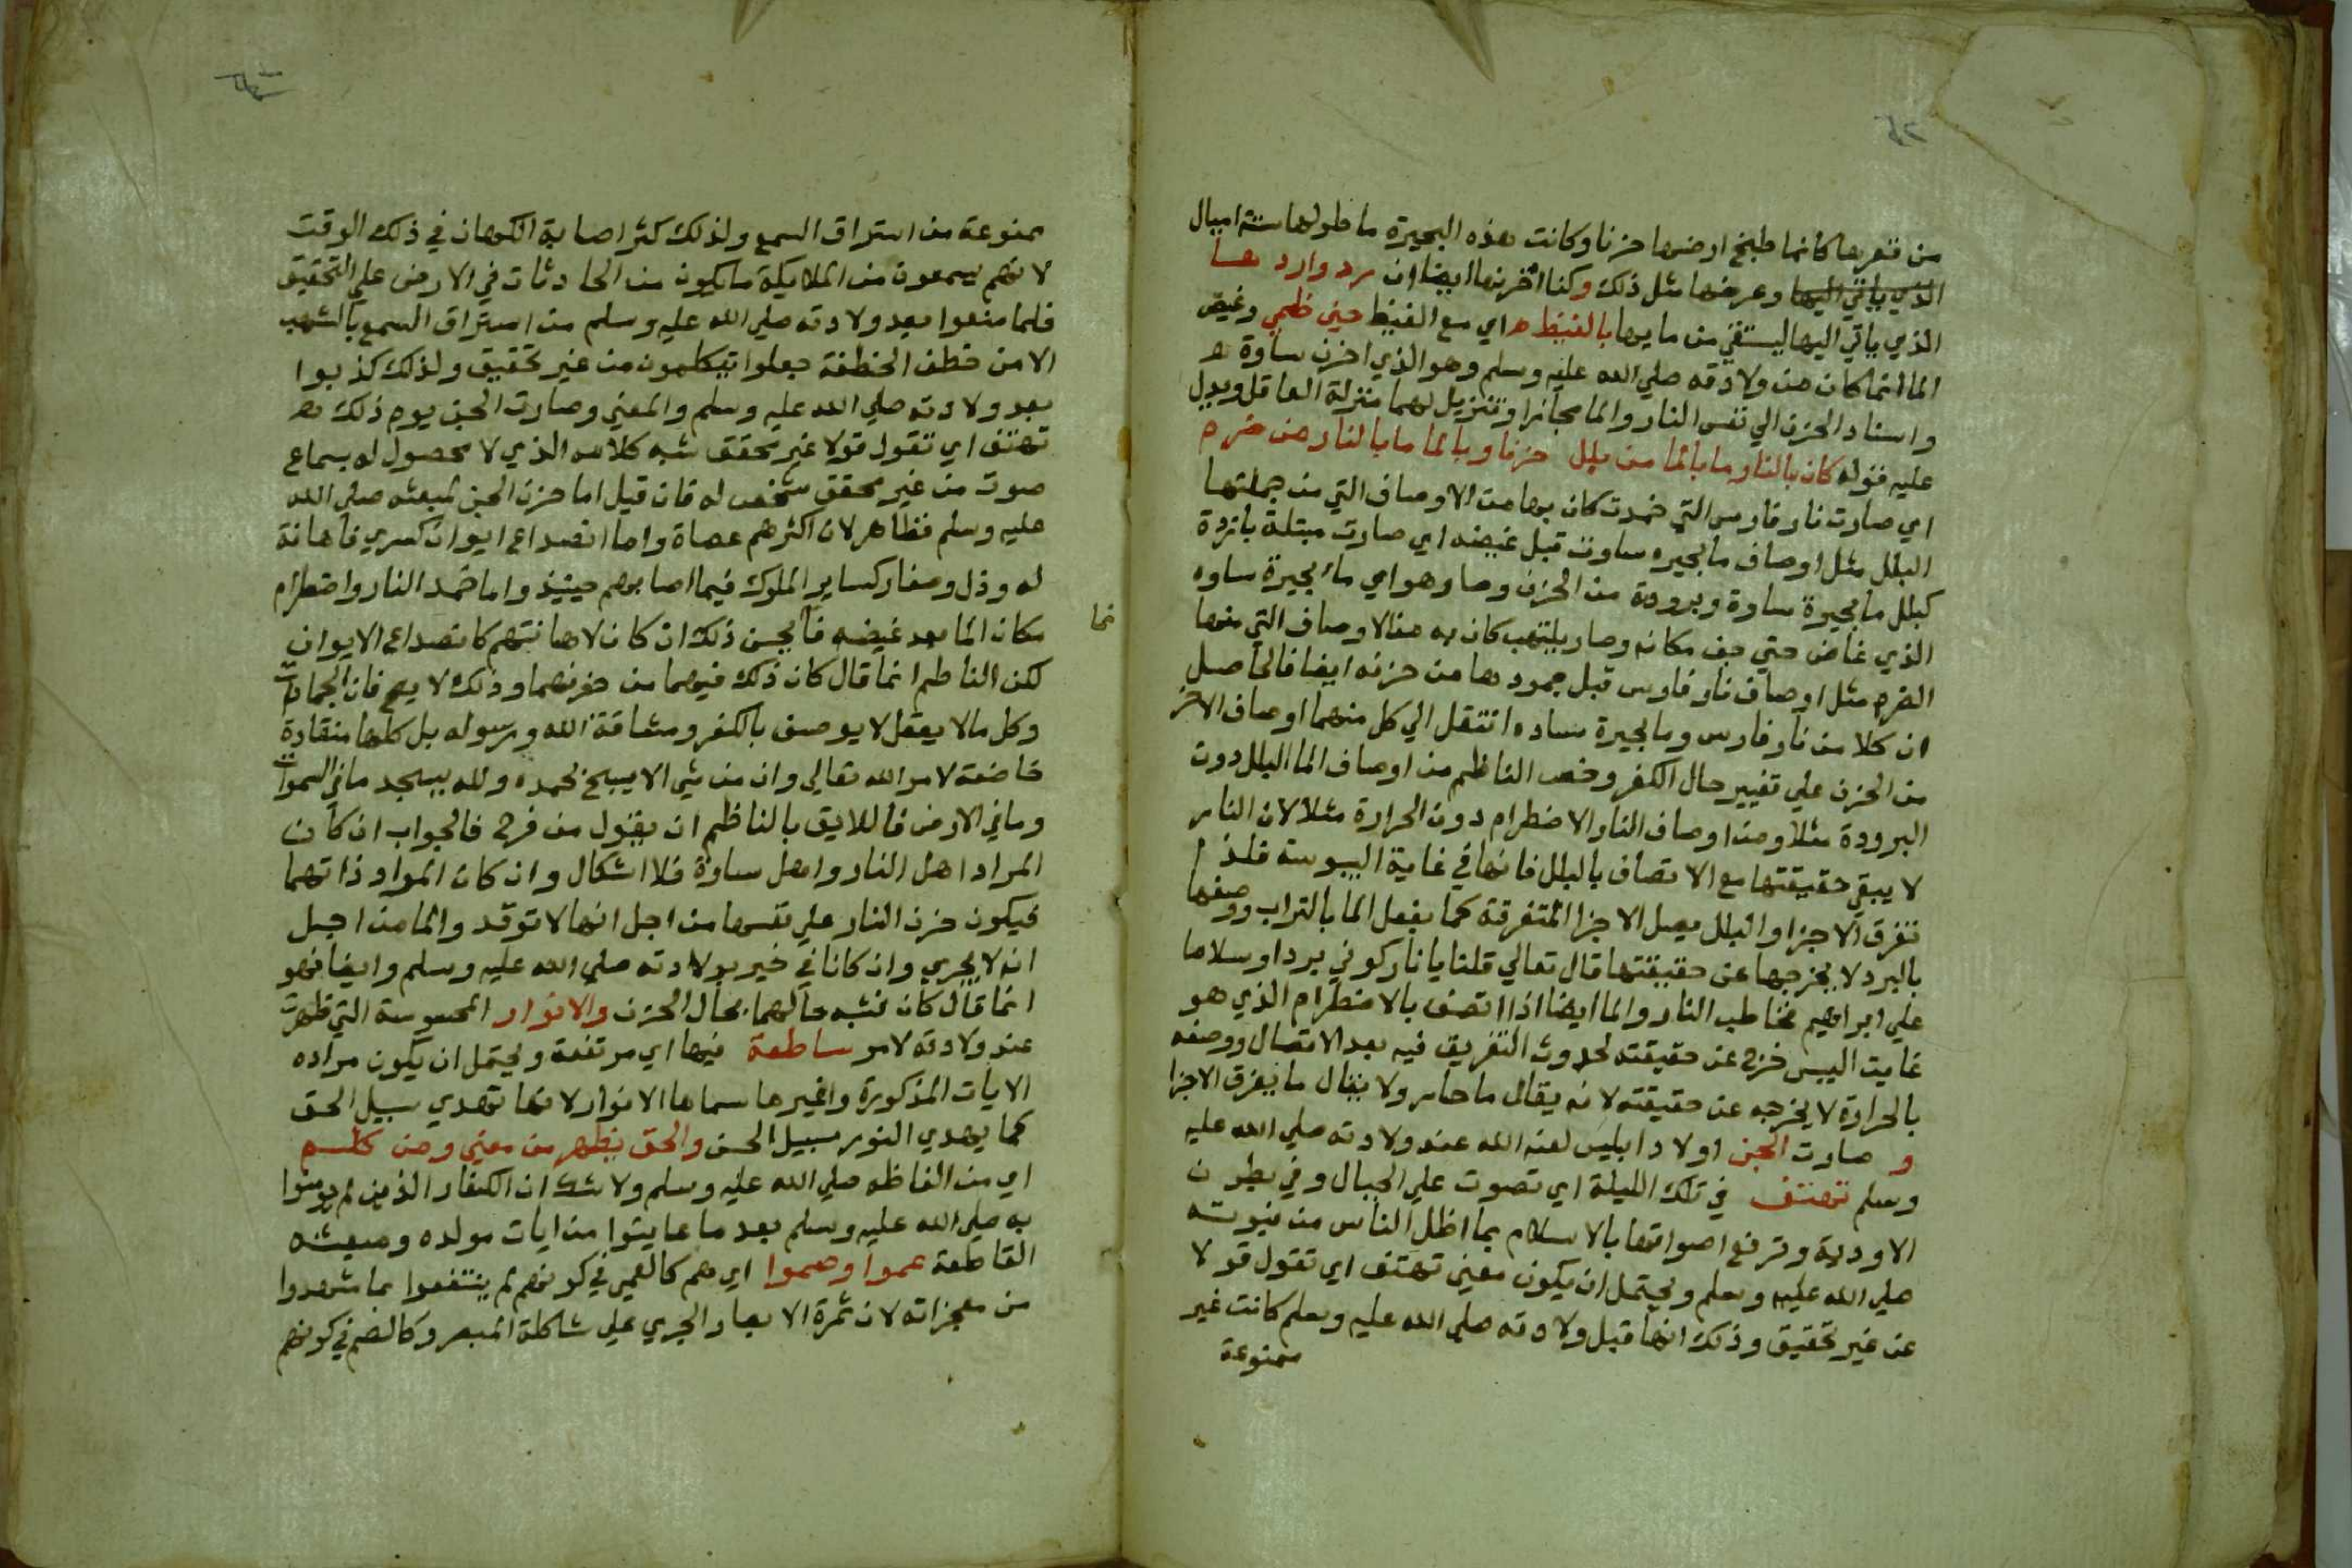 ٤٢
من قعرها كانما طبخ ارضها حزنا وكانت هذه البحيرة ما طولها ستة اميال
الذي ياتي اليها وعرضها مثل ذلك وكنا اخرنها ايضا ان رد واردها
الذي ياتي اليها ليستقي من مايها بالغيظ اي مع الغيظ حين ظمي وغيض
الما انما كان من ولادته صلي الله عليه وسلم وهو الذي احزن ساوة
واسناد الحزن الي نفس النار والما مجازا وتنزيل لهما منزلة العاقل ويدل
عليه قوله كان بالنار ما بالما من بلل حزنا وبالما ما بالنار من ضرم
اي صارت نار فارس التي خمدت كان بها من الاوصاف التي من جملتها
البلل مثل اوصاف ما بحيره ساوت قبل غيضه اي صارت مبتلة باردة
كبلل ما بحيرة ساوة وبرودة من الحزن وصار هو اي ماء بحيرة ساوه
الذي غاض حتي جف مكانه وصار يلتهب كان به من الاوصاف التي منها
الضرم مثل اوصاف نار فارس قبل جمودها من حزنه ايضا فالحاصل
ان كلا من نار فارس وما بحيرة ساده انتقل الي كل منهما اوصاف الاخر
من الحزن علي تغيير حال الكفر وخص الناظم من اوصاف الما البلل دون
البرودة مثلا ومن اوصاف النار الاضطرام دون الحرارة مثلا لان النار
لا يبقي حقيقتها مع الاتصاف بالبلل فانها في غاية اليبوسة فلذا
تفرق الاجزا والبلل يصل الاجزا المتفرقة كما يفعل الما بالتراب ووصفها
بالبرد لا يخرجها عن حقيقتها قال تعالي قلنا يا نار كوني بردا وسلاما
علي ابراهيم فخاطب النار والما ايضا اذا اتصف بالاضطرام الذي هو
غايت اليبس خرج عن حقيقته لحدوث التفريق فيه بعد الاتصال ووصفه
بالحرارة لا يخرجه عن حقيقته لانه يقال ما حار ولا يقال ما يفرق الاجزا
و صارت الجن اولاد ابليس لعنه الله عند ولادته صلي الله عليه
وسلم تهتف في تلك الليلة اي تصوت علي الجبال وفي بطون
الاودية وترفع اصواتها بالاسلام بما اظل الناس من نبوته
صلي الله عليه وسلم ويحتمل ان يكون معني تهتف اي تقول قولا
عن غير تحقيق وذلك انها قبل ولادته صلي الله عليه وسلم كانت غير
ممنوعة
ممنوعة من استراق السمع ولذلك كثر اصابة الكهان في ذلك الوقت
لانهم يسمعون من الملايكة ما يكون من الحادثات في الارض علي التحقيق
فلما منعوا بعد ولادته صلي الله عليه وسلم من استراق السمع بالشهب
الا من خطف الخطفة جعلوا يتكلمون من غير تحقيق ولذلك كذبوا
بعد ولادته صلي الله عليه وسلم والمعني وصارت الجن يوم ذلك
تهتف اي تقول قولا غير محقق شبه كلامه الذي لا محصول له بسماع
صوت من غير محقق شخص له فان قيل اما حزن الجن لمبعثه صلي الله
عليه وسلم فظاهر لان اكثرهم عصاة واما انصداع ايوان كسري فاهانة
له وذل وصغار كساير الملوك فيما اصابهم حينيذ واما خمد النار واضطرام
مكان الما بعد غيضه فانما يحسن ذلك ان كان لاهانتهم كانصداع الايوان
لكن الناظم انما قال كان ذلك فيهما من حزنهما وذلك لا يصح فان الجمادات
وكل مالا يعقل لا يوصف بالكفر ومشاقة الله ورسوله بل كلها منقادة
خاضعة لامر الله تعالي وان من شي الا يسبح بحمده ولله يسجد ما في السموات
وما في الارض فاللايق بالناظم ان يقول من فرح فالجواب ان كان
المراد اهل النار واهل ساوة فلا اشكال وان كان المراد ذاتهما
فيكون حزن النار علي نفسها من اجل انها لا توقد والما من اجل
انه لا يجري وان كانا في خير بولادته صلي الله عليه وسلم وايضا فهو
انما قال كان فشبه حالهما بحال الحزن والانوار المحسوسة التي ظهرت
عند ولادته لامر ساطعة فيها اي مرتفعة ويحتمل ان يكون مراده
الايات المذكورة وغيرها سماها الانوار لانها تهدي سبيل الحق
كما يهدي النور سبيل الحسن والحق يظهر من معني ومن كلم
اي من الفاظه صلي الله عليه وسلم ولا شك ان الكفار الذين لم يومنوا
به صلي الله عليه وسلم بعد ما عاينوا من ايات مولده ومبعثه
القاطعة عموا وصموا اي هم كالعمي في كونهم لم ينتفعوا بما شهدوا
من معجزاته لان ثمرة الابصار الجري علي شاكلة المبصر وكالصم في كونهم